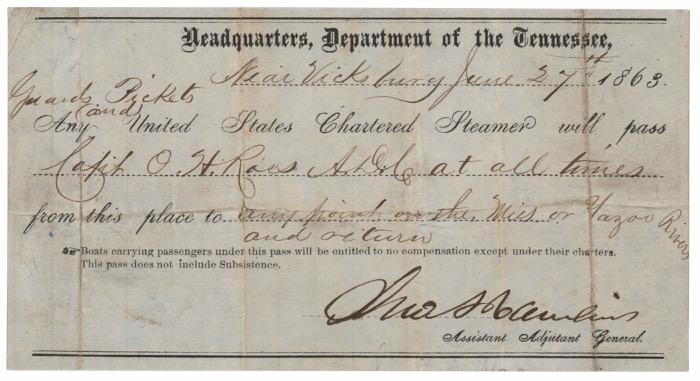 Headquarters, Department of the Tennessee,
Near Vicksburg June 27th 1863.
Guards Pickets
and
Any United States Chartered Steamer will pass
Capt. O. H. Ross A.D.C. at all times
from this place to any point on the Miss or Yazoo Rivers
and return
Boats carrying passengers under this pass will be entitled to no compensation except under their charters.
This pass does not include Subsistence.
Jno A Rawlins
Assistant Adjutant General.